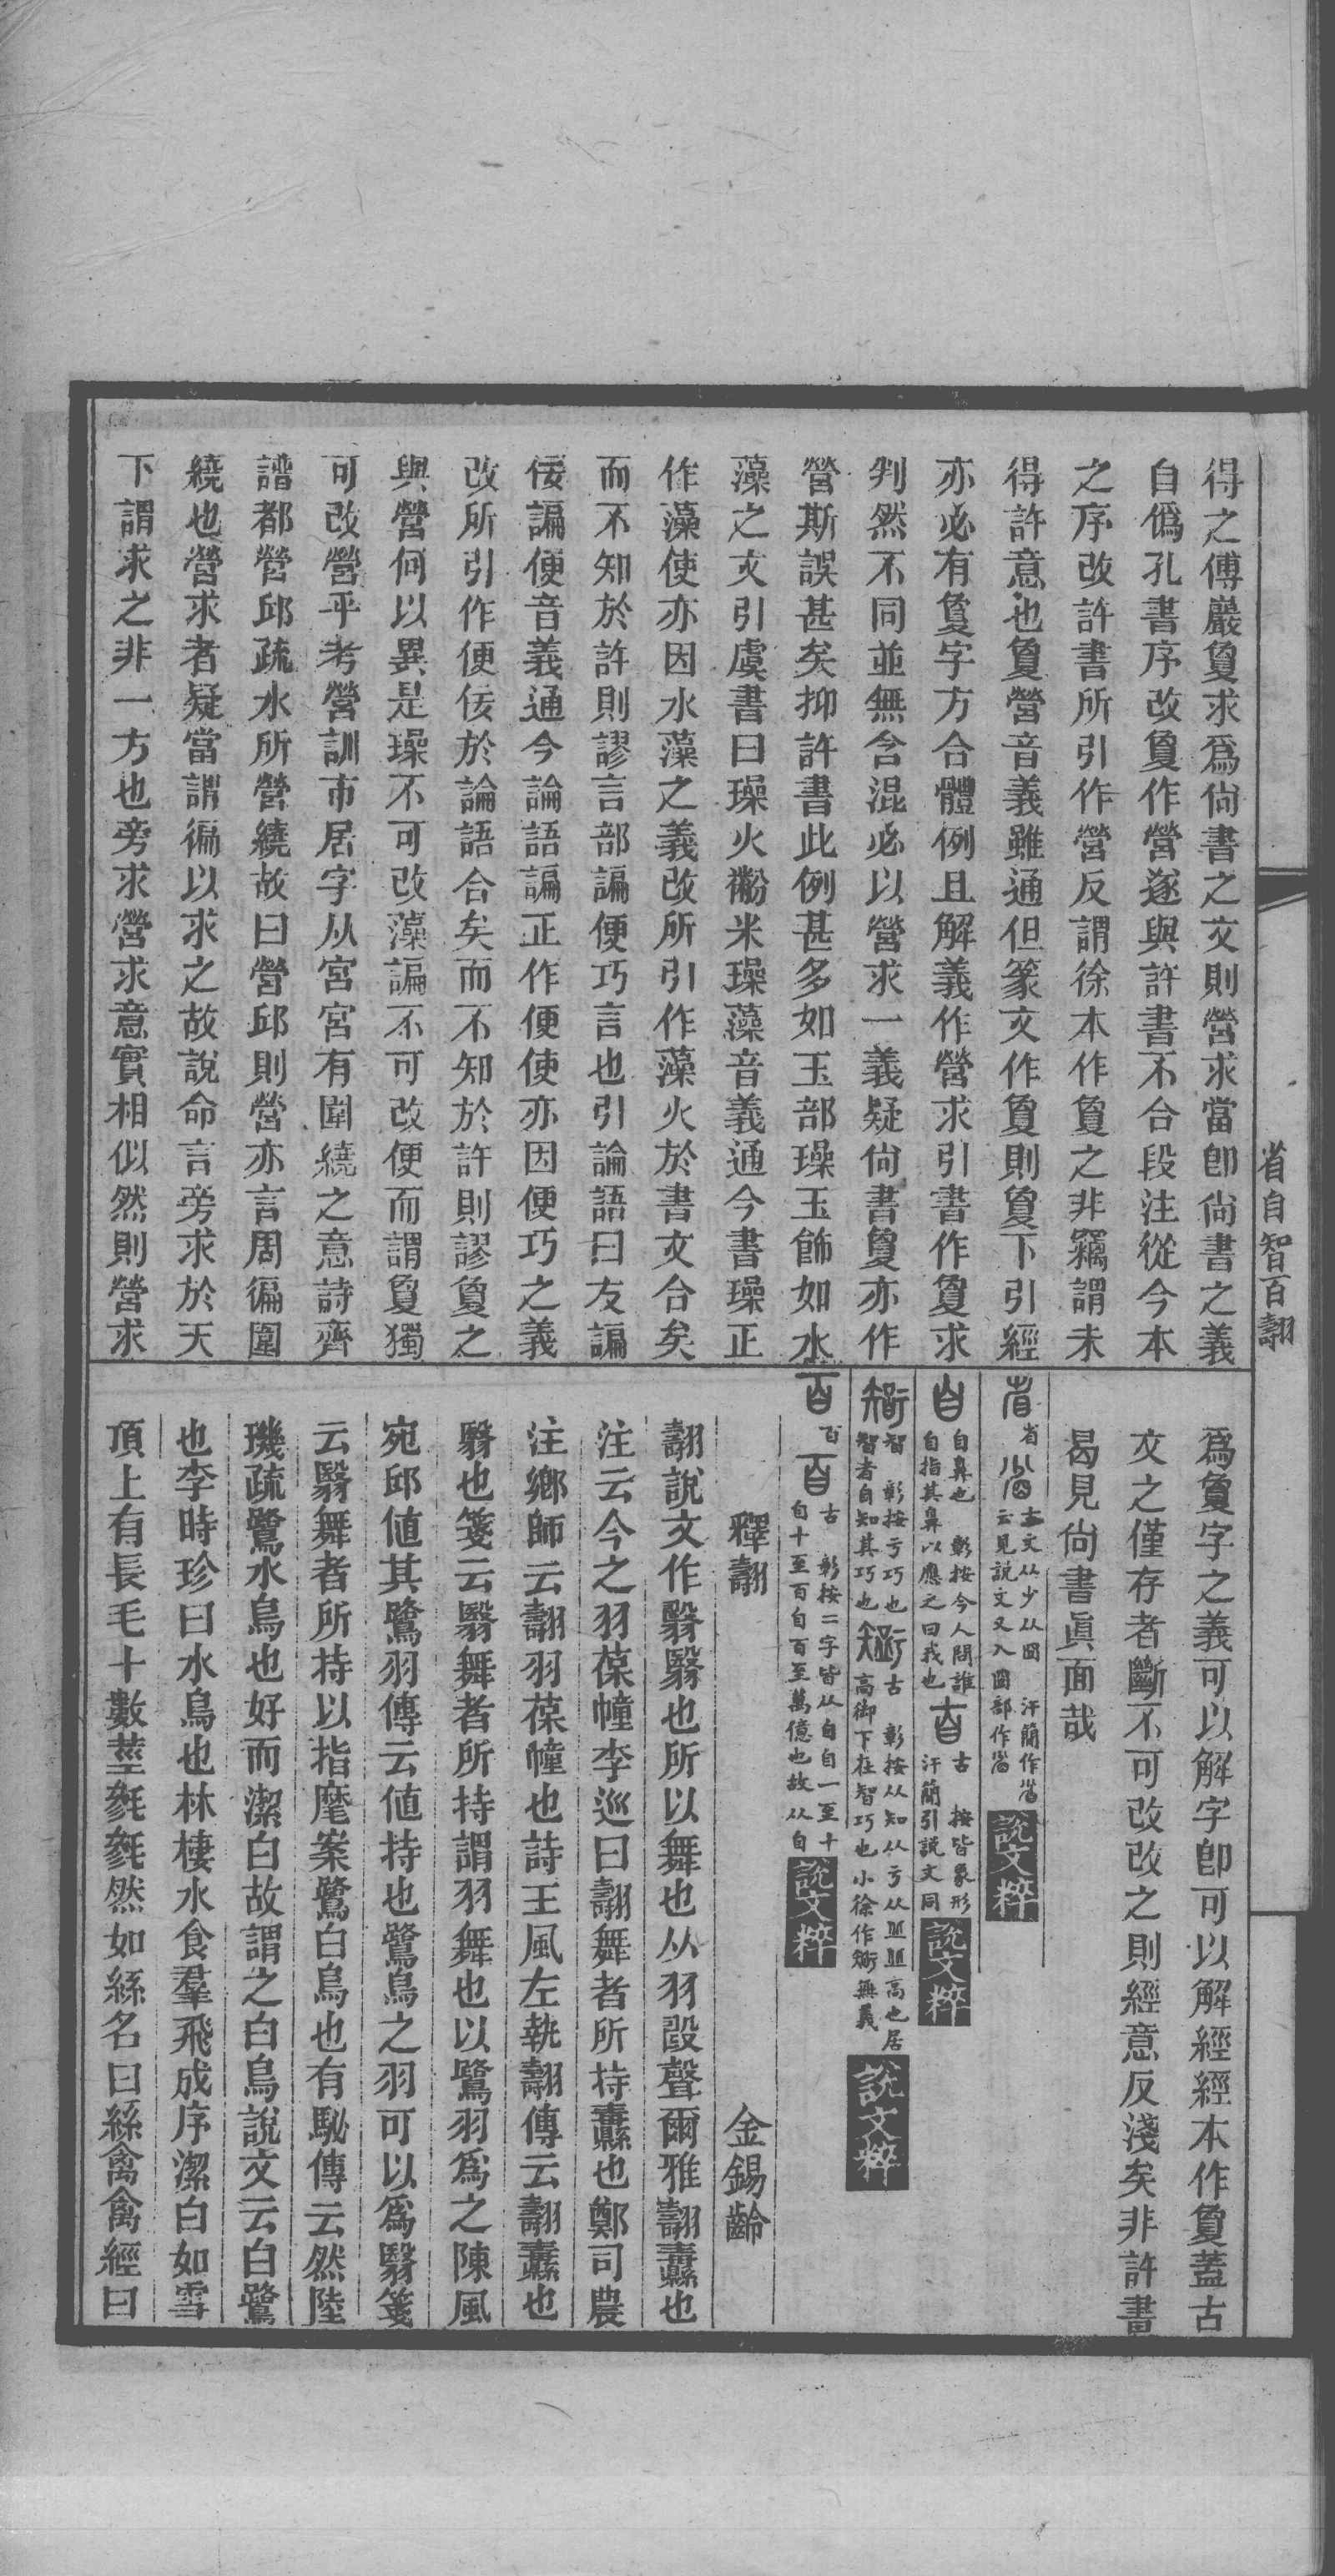 得之傅巖敻求爲尙書之文則營求當卽尙書之義
自僞孔書序改敻作營遂與許書不合段注從今本
之序改許書所引作營反謂徐本作敻之非竊謂未
得許意也敻營音義雖通但篆文作敻則敻下引經
亦必有敻字方合體例且解義作營求引書作敻求
判然不同並無含混必以營求一義疑尙書敻亦作
營斯誤甚矣抑許書此例甚多如玉部璪玉飾如水
藻之文引虞書曰璪火黺米璪藻音義通今書璪正
作藻使亦因水藻之義改所引作藻火於書文合矣
而不知於許則謬言部諞便巧言也引論語曰友諞
佞諞便音義通今論語諞正作便使亦因便巧之義
改所引作便佞於論語合矣而不知於許則謬敻之
與營何以異是璪不可改藻諞不可改便而謂敻獨
可改營乎考營訓市居字从宮宮有圍繞之意詩齊
譜都營邱疏水所營繞故曰營邱則營亦言周徧圍
繞也營求者疑當謂徧以求之故說命言旁求於天
下謂求之非一方也旁求營求意實相似然則營求
爲敻字之義可以解字卽可以解經經本作敻蓋古
文之僅存者斷不可改改之則經意反淺矣非許書
曷見尙書眞面哉
省 古文从少从囧 汗簡作 云見說文又入囧部作 說文粹
自 自鼻也 彰按今人問誰自指其鼻以應之曰我也 古 按皆象形汗簡引說文同 說文粹
智 彰按亏巧也智者自知其巧也 古 彰按从知从亏从 高也居高御下在智巧也小徐作 無義 說文粹
百 百 古 彰按二字皆从自自一至十自十至百自百至萬億也故从自 說文粹
釋翿 金錫齡
翿說文作翳翳也所以舞也从羽殹聲爾雅翿纛也
注云今之羽葆幢李巡曰翿舞者所持纛也鄭司農
注鄉師云翿羽葆幢也詩王風左執翿傳云翿纛也
翳也箋云翳舞者所持謂羽舞也以鷺羽爲之陳風
宛邱値其鷺羽傳云値持也鷺鳥之羽可以爲翳箋
云翳舞者所持以指麾案鷺白鳥也有駜傳云然陸
璣疏鷺水鳥也好而潔白故謂之白鳥說文云白鷺
也李時珍曰水鳥也林棲水食羣飛成序潔白如雪
頂上有長毛十數莖毵毵然如絲名曰絲禽禽經曰
省自智百翿